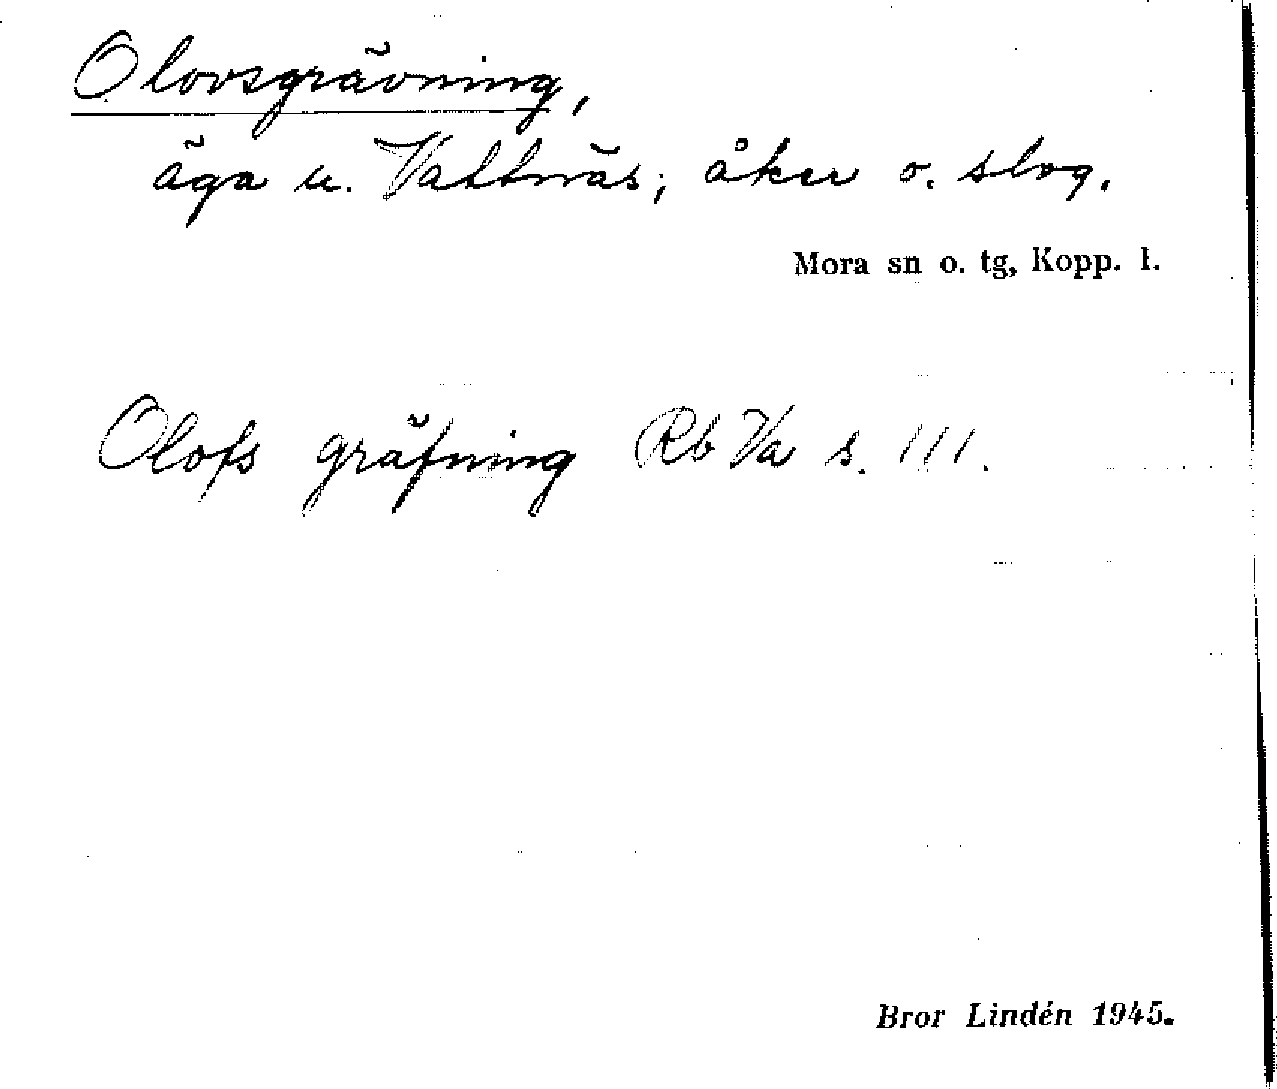 Olovsgrävning,
äga u. Vattnäs; åker o. slog.
Mora sn o. tg, Kopp. l.
Olofs gräfning Rb Va s. 111.
Bror Lindén 1945.